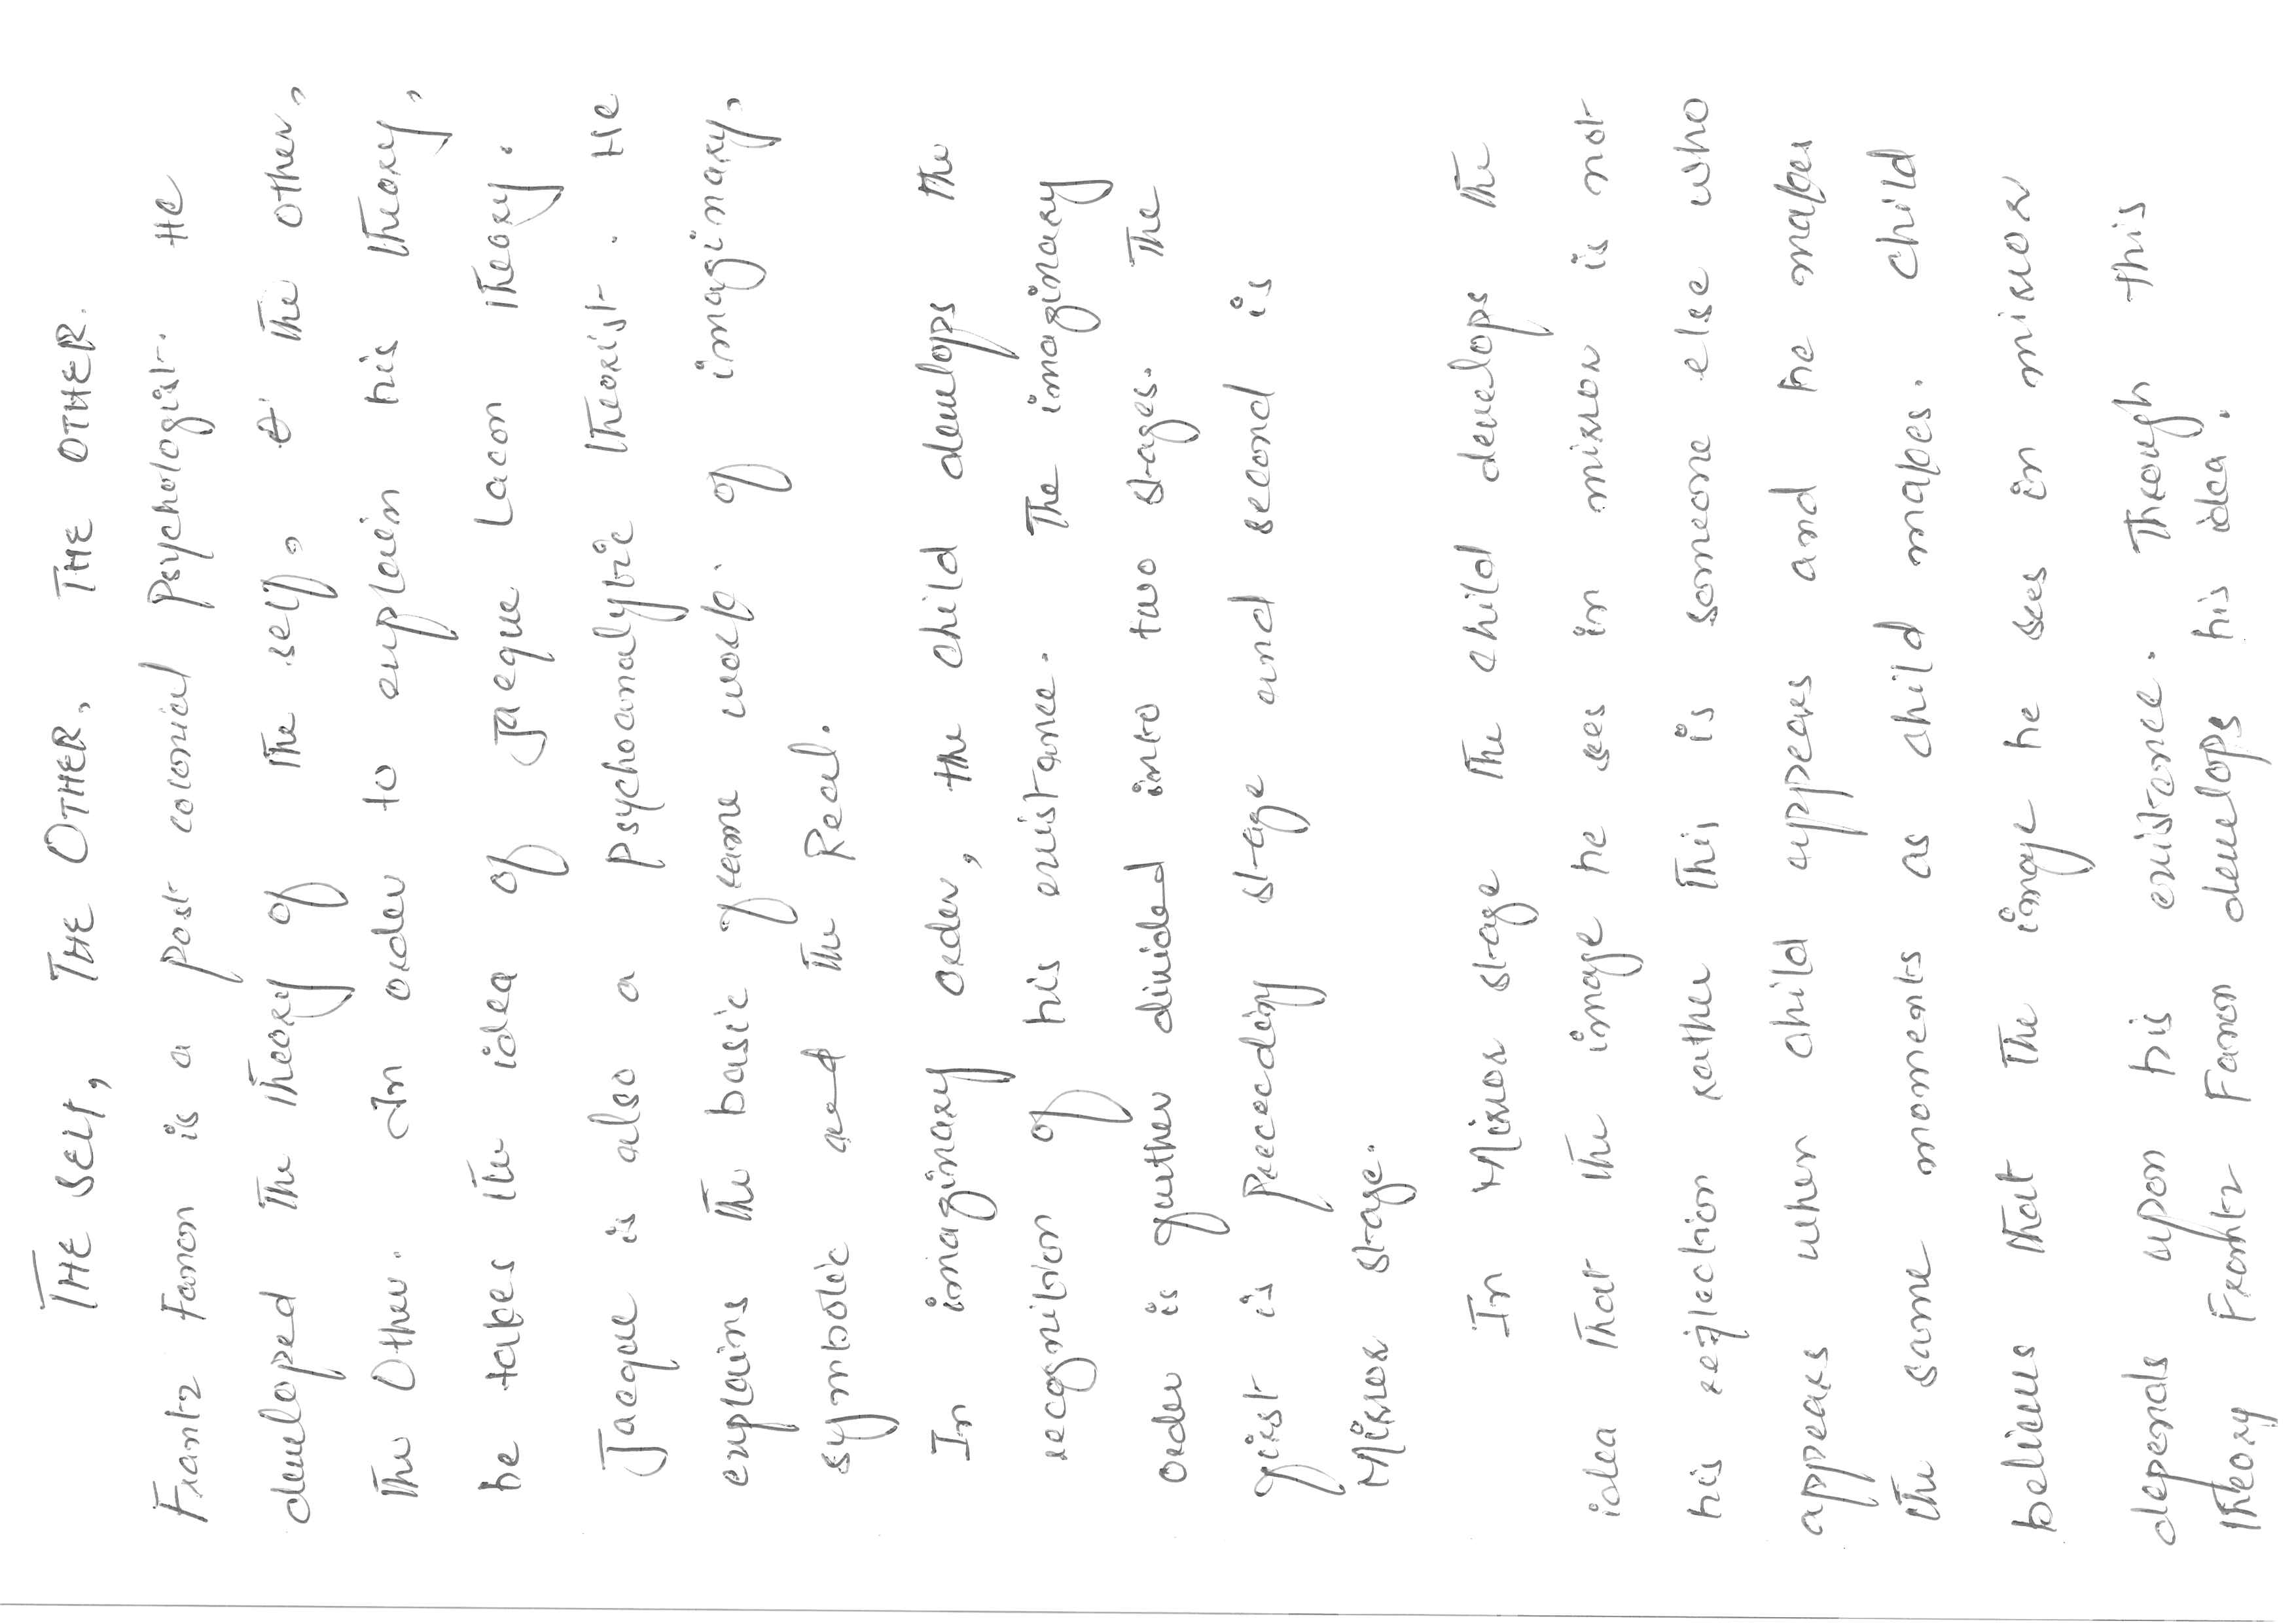 THE SELF, THE OTHER, THE OTHER.
Frantz Fanon is a post colonial psychologist. He
developed the theory of the self, the other,
the Other. In order to explain his theory,
he takes the idea of Jacque Lacan theory.
Jacque is also a psychoanalytic theorist. He
explains the basic frame work of imaginary,
symbolic and the Real.
In imaginary order, the child develops the
recognition of his existance. The imaginary
order is further divided into two stages. The
first is preceeding stage and second is
Mirror stage.
In Mirror stage the child develops the
idea that the image he sees in mirror is not
his reflection rather this is someone else who
appears when child appears and he makes
the same moments as child makes. Child
believes that the image he sees in mirror
depends upon his existence. Through this
theory Frantz Fanon develops his idea.